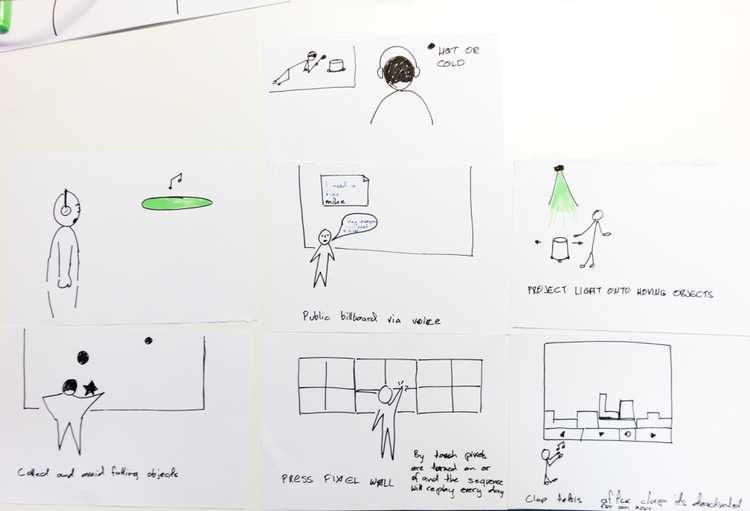 HOT OR
COLD
I need a
mike
Public billboard via voice
PROJECT LIGHT ONTO MOVING OBJECTS
Collect and avoid falling objects
PRESS PIXEL WALL
By touch pixels
are turned on or
of and the sequence
will replay every day
Clap tetris